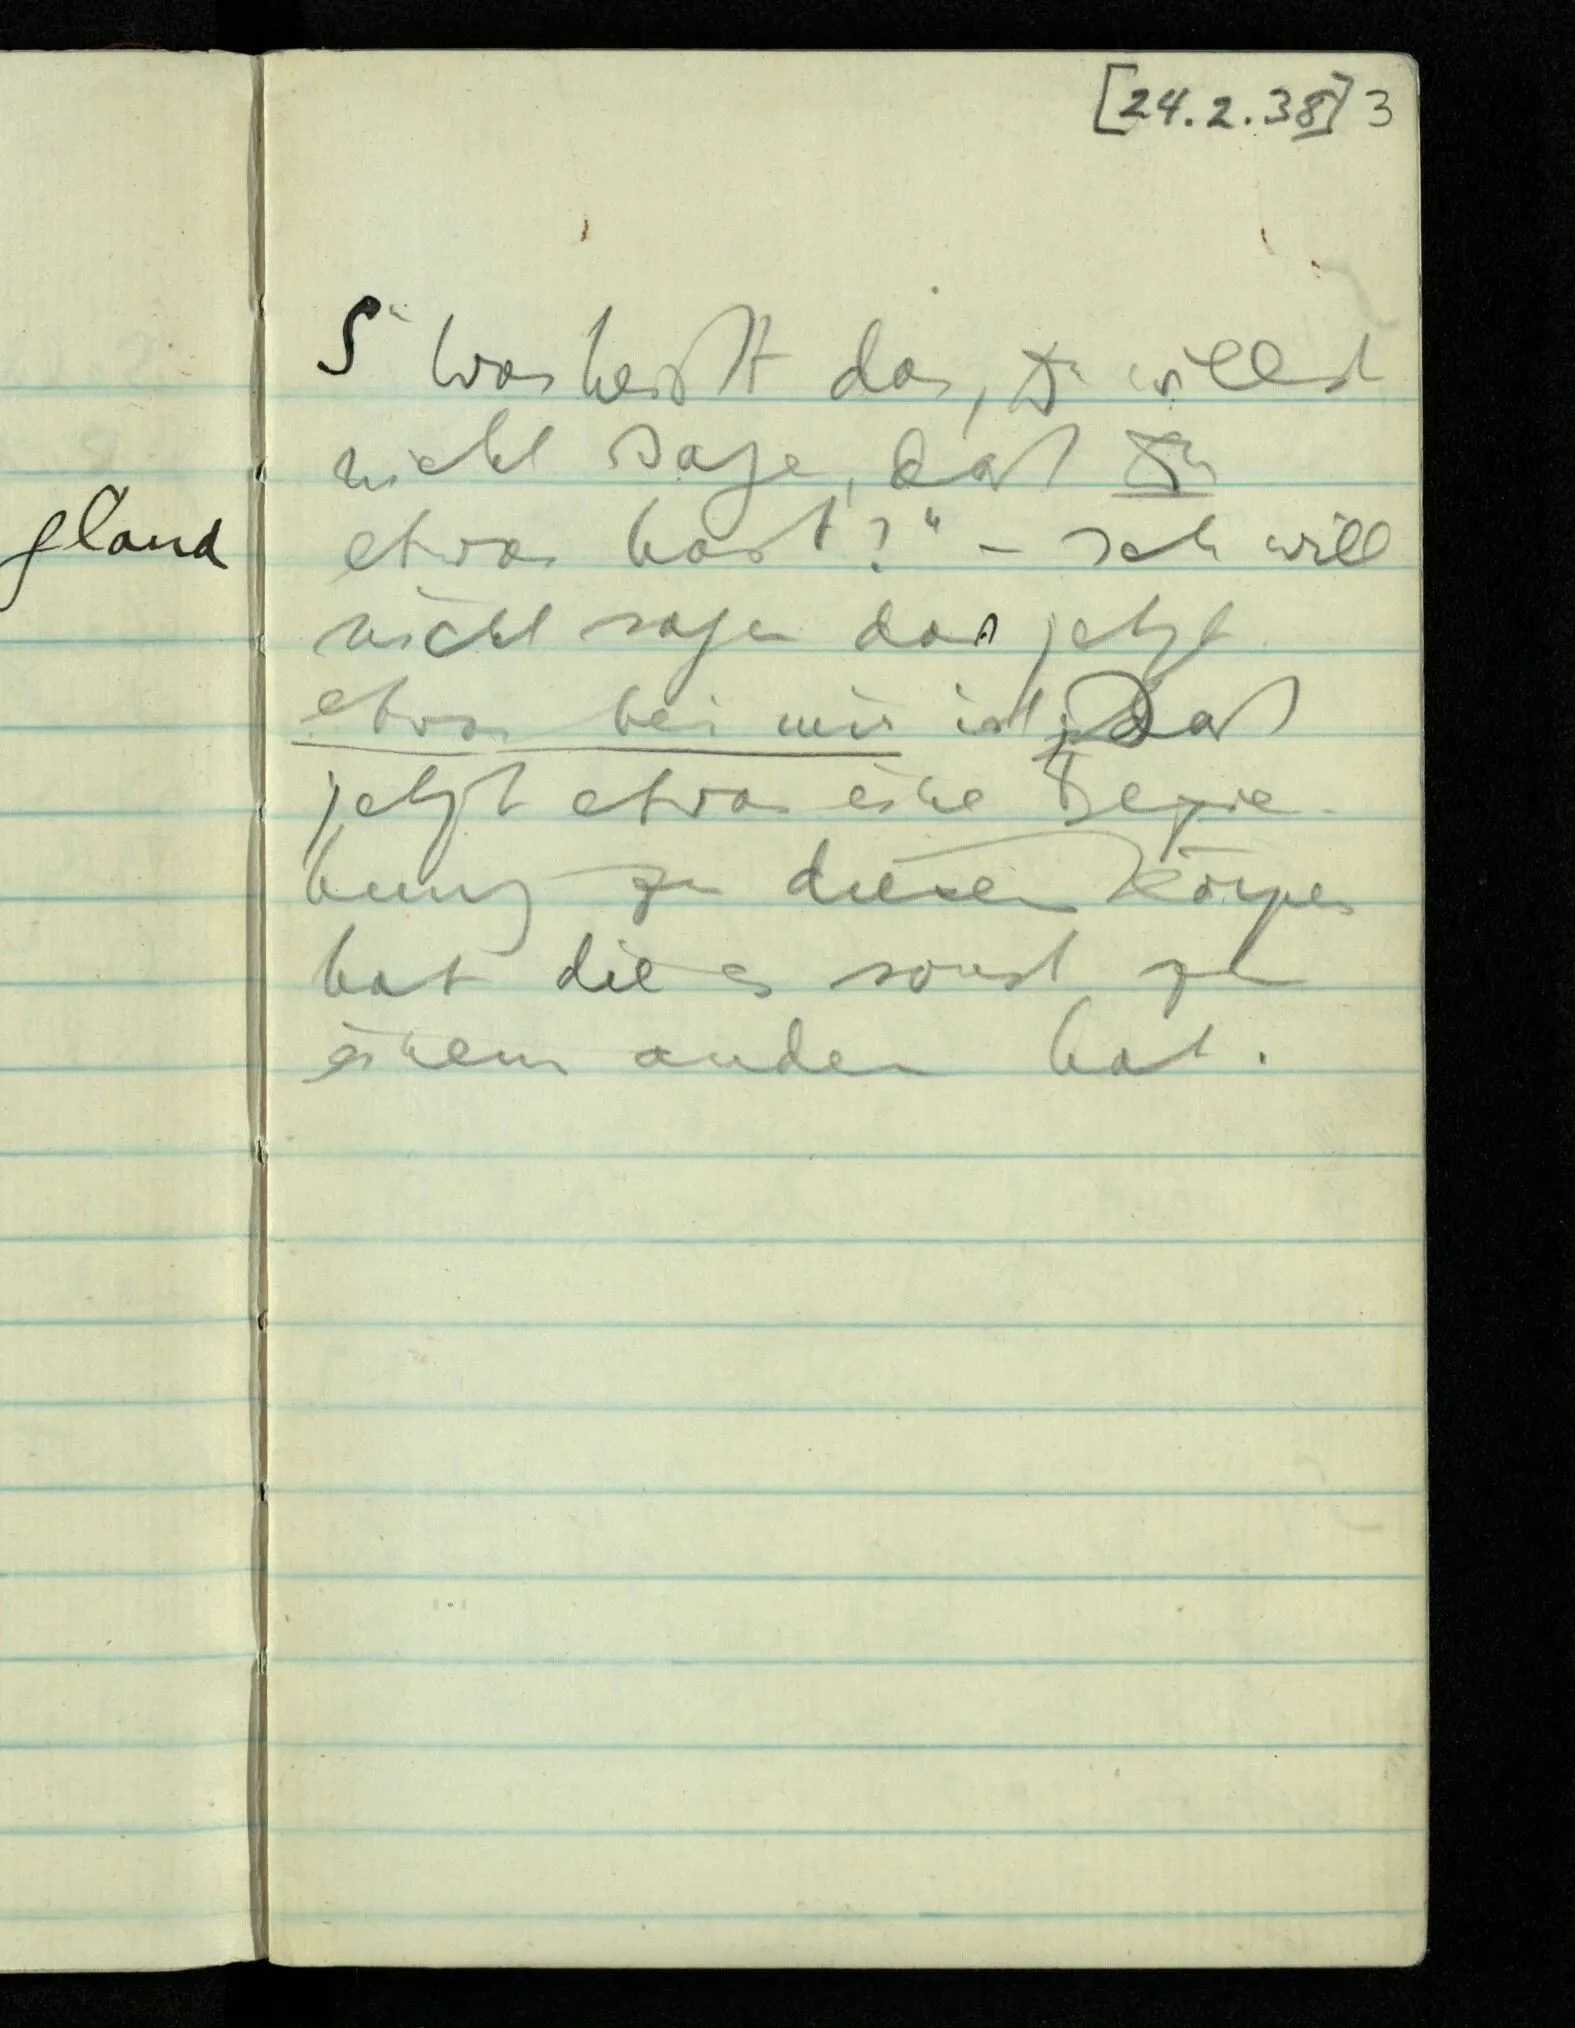 [24.2.38] 3
S " Was heißt das, Du willst
nicht sage, daß Du
etwas hast?" – Ich will
nicht sagen das jetzt
gland
etwas bei mir ist, Daß
jetzt etwas eine Bezie-
hung zu diesem Körper
hat die es sonst zu
einem anden hat.